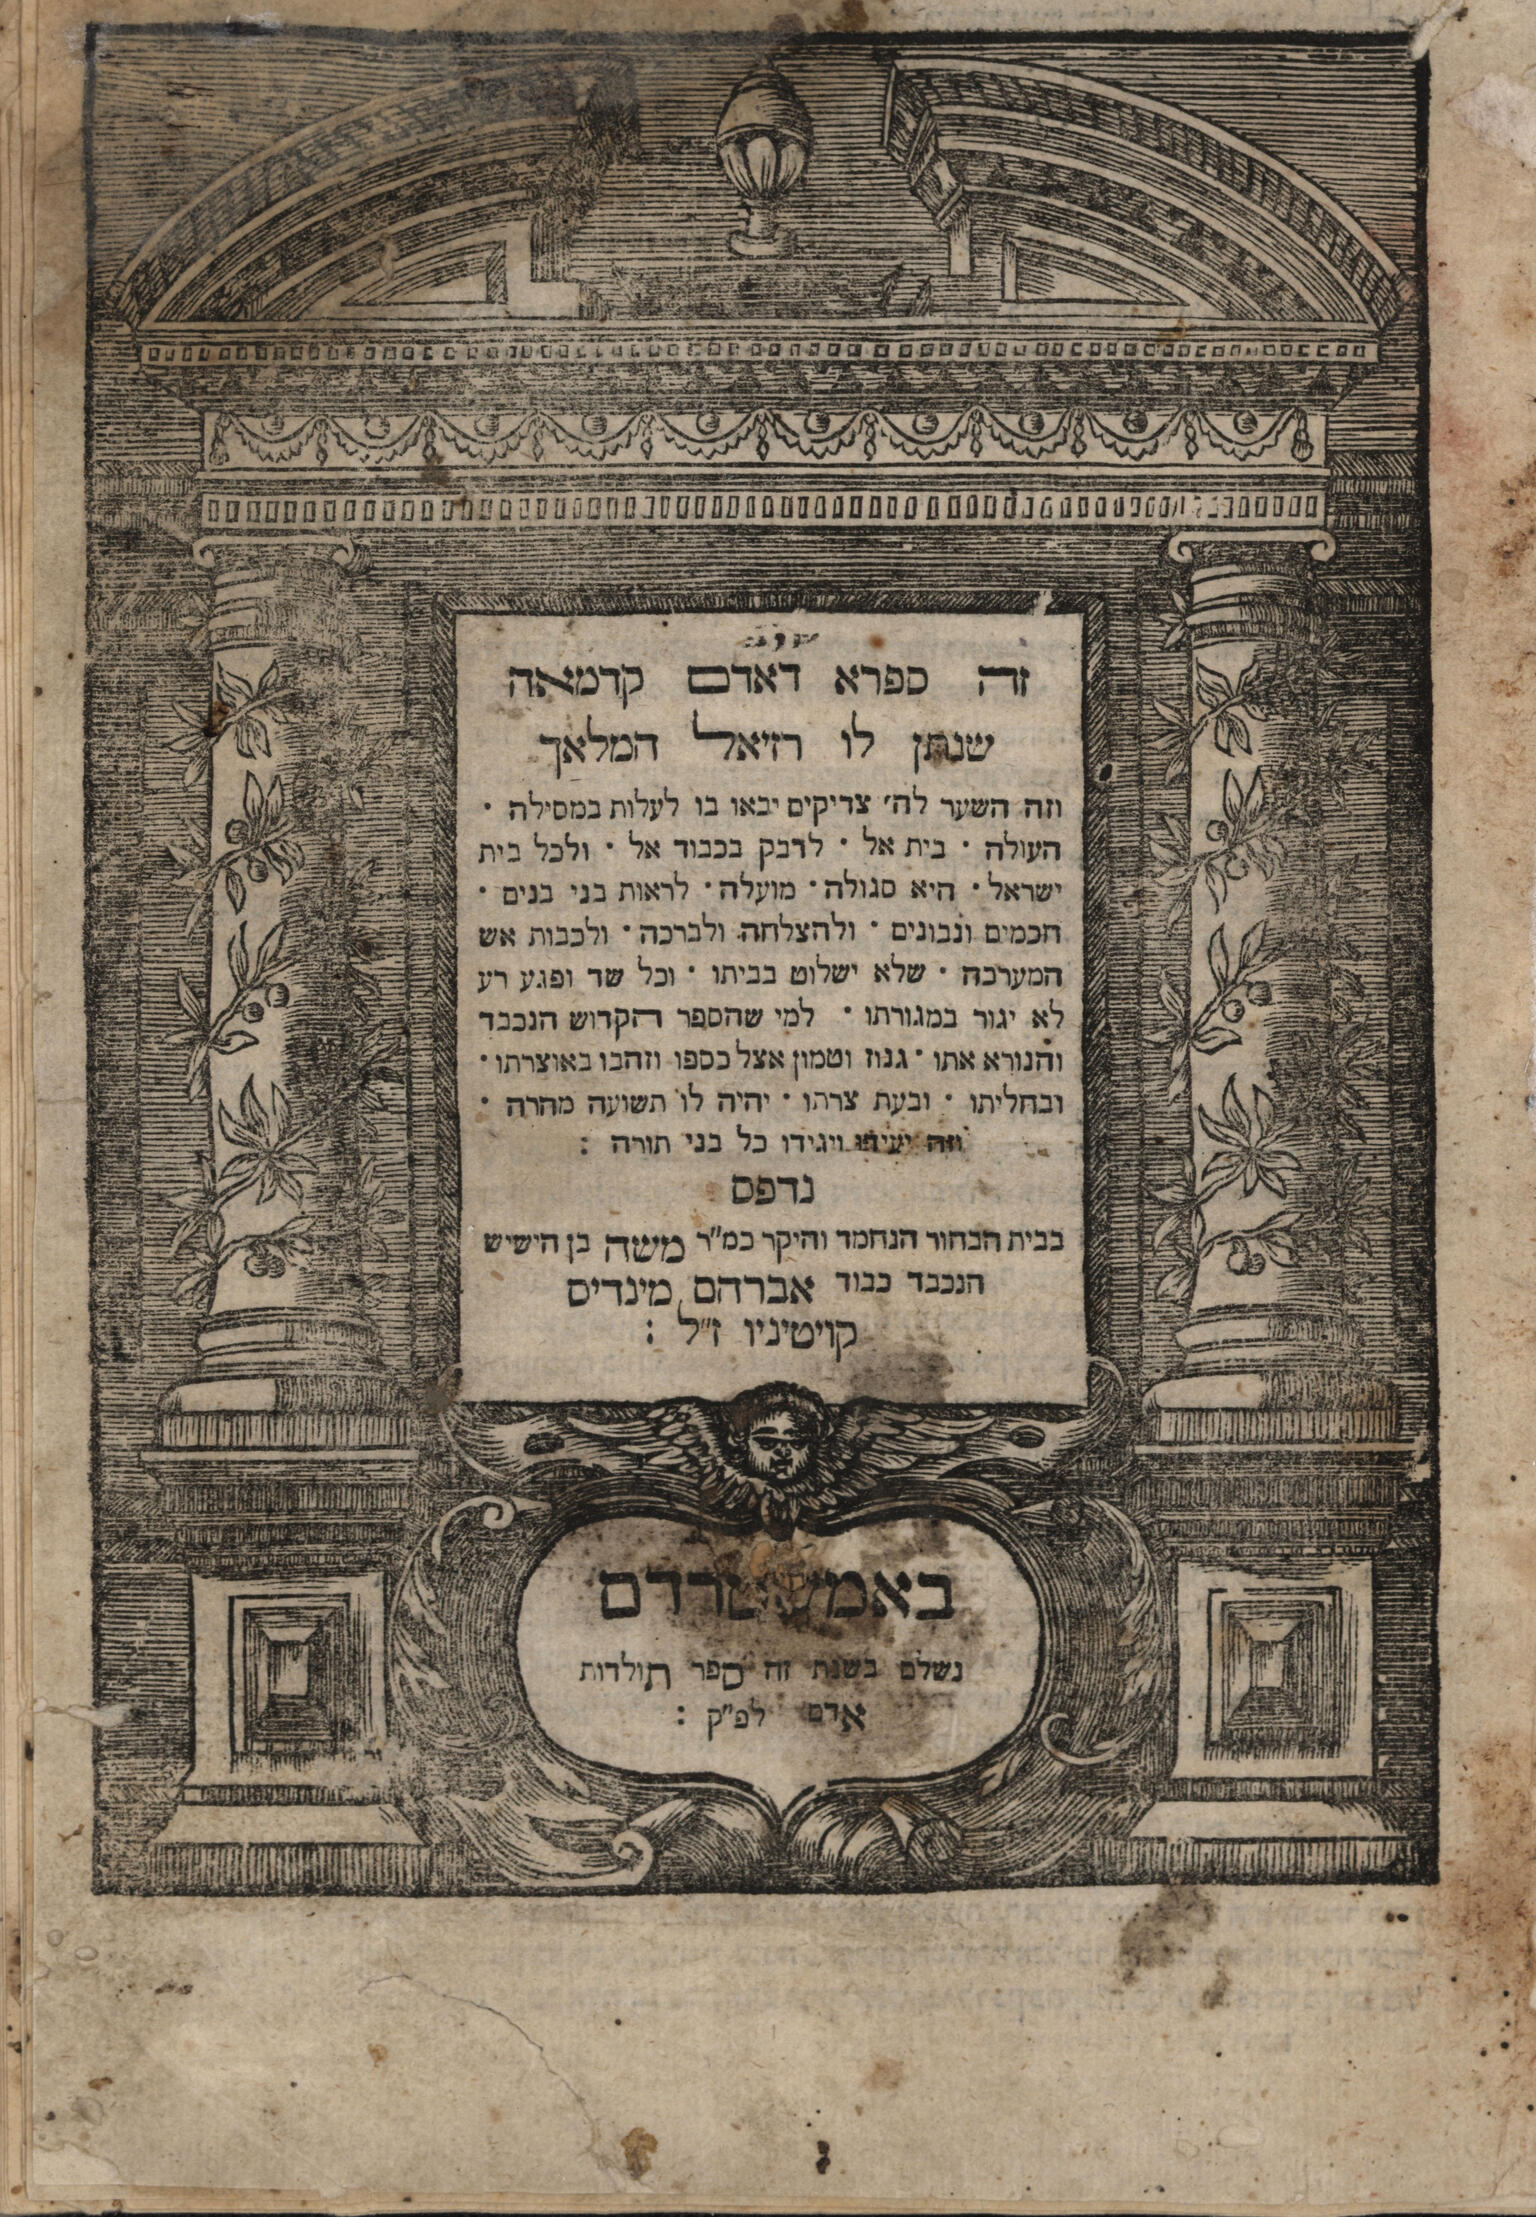 זה ספרא דאדם קדמאה
שנתן לו רזיאל המלאך
וזה השער לה׳ צדיקים יבאו בו לעלות במסילה ·
העולה · בית אל · לדבק בכבוד אל · ולכל בית
ישראל · היא סגולה · מועלה · לראות בני בנים ·
חכמים ונבונים · ולהצלחה ולברכה · ולכבות אש
המערכה · שלא ישלוט בביתו · וכל שד ופגע רע
לא יגור במגורתו · למי שהספר הקדוש הנכבד
והנורא אתו · גנוז וטמון אצל כספו וזהבו באוצרתו ·
ובחליתו · ובעת צרתו · יהיה לו תשועה מהרה ·
וזה יעידו ויגידו כל בני תורה :
נדפס
בבית הבחור הנחמד והיקר כמ"ר משה בן הישיש
הנכבד כבוד אברהם מינדיס
קויטיניו ז"ל :
באמשטרדם
נשלם בשנת זה ספר תולדות
אדם לפ"ק :